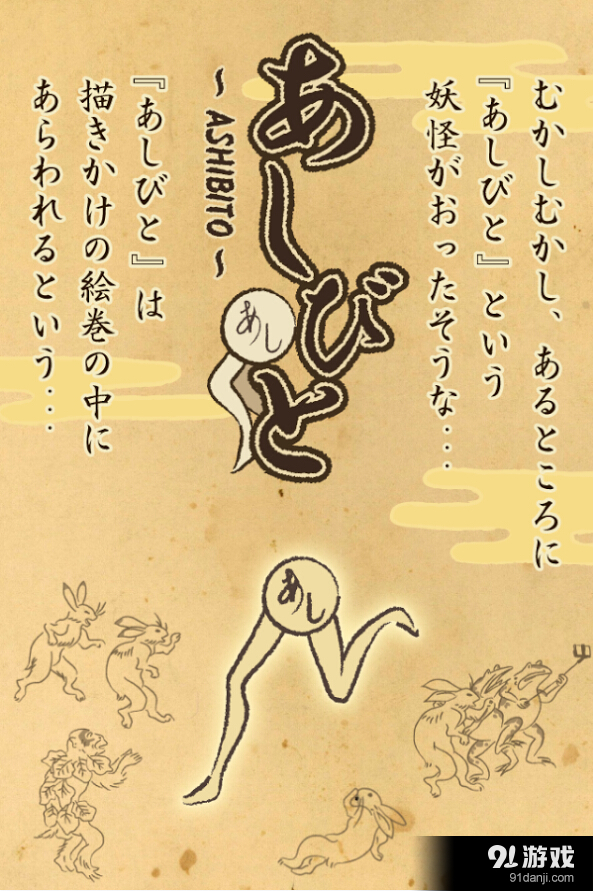 むかしむかし、あるところに
『あしびと』という
妖怪がおったそうな･･･
あしびと
～ ASHIBITO ～
あし
『あしびと』は
描きかけの絵巻の中に
あらわれるという･･･
あし
91游戏
91danji.com